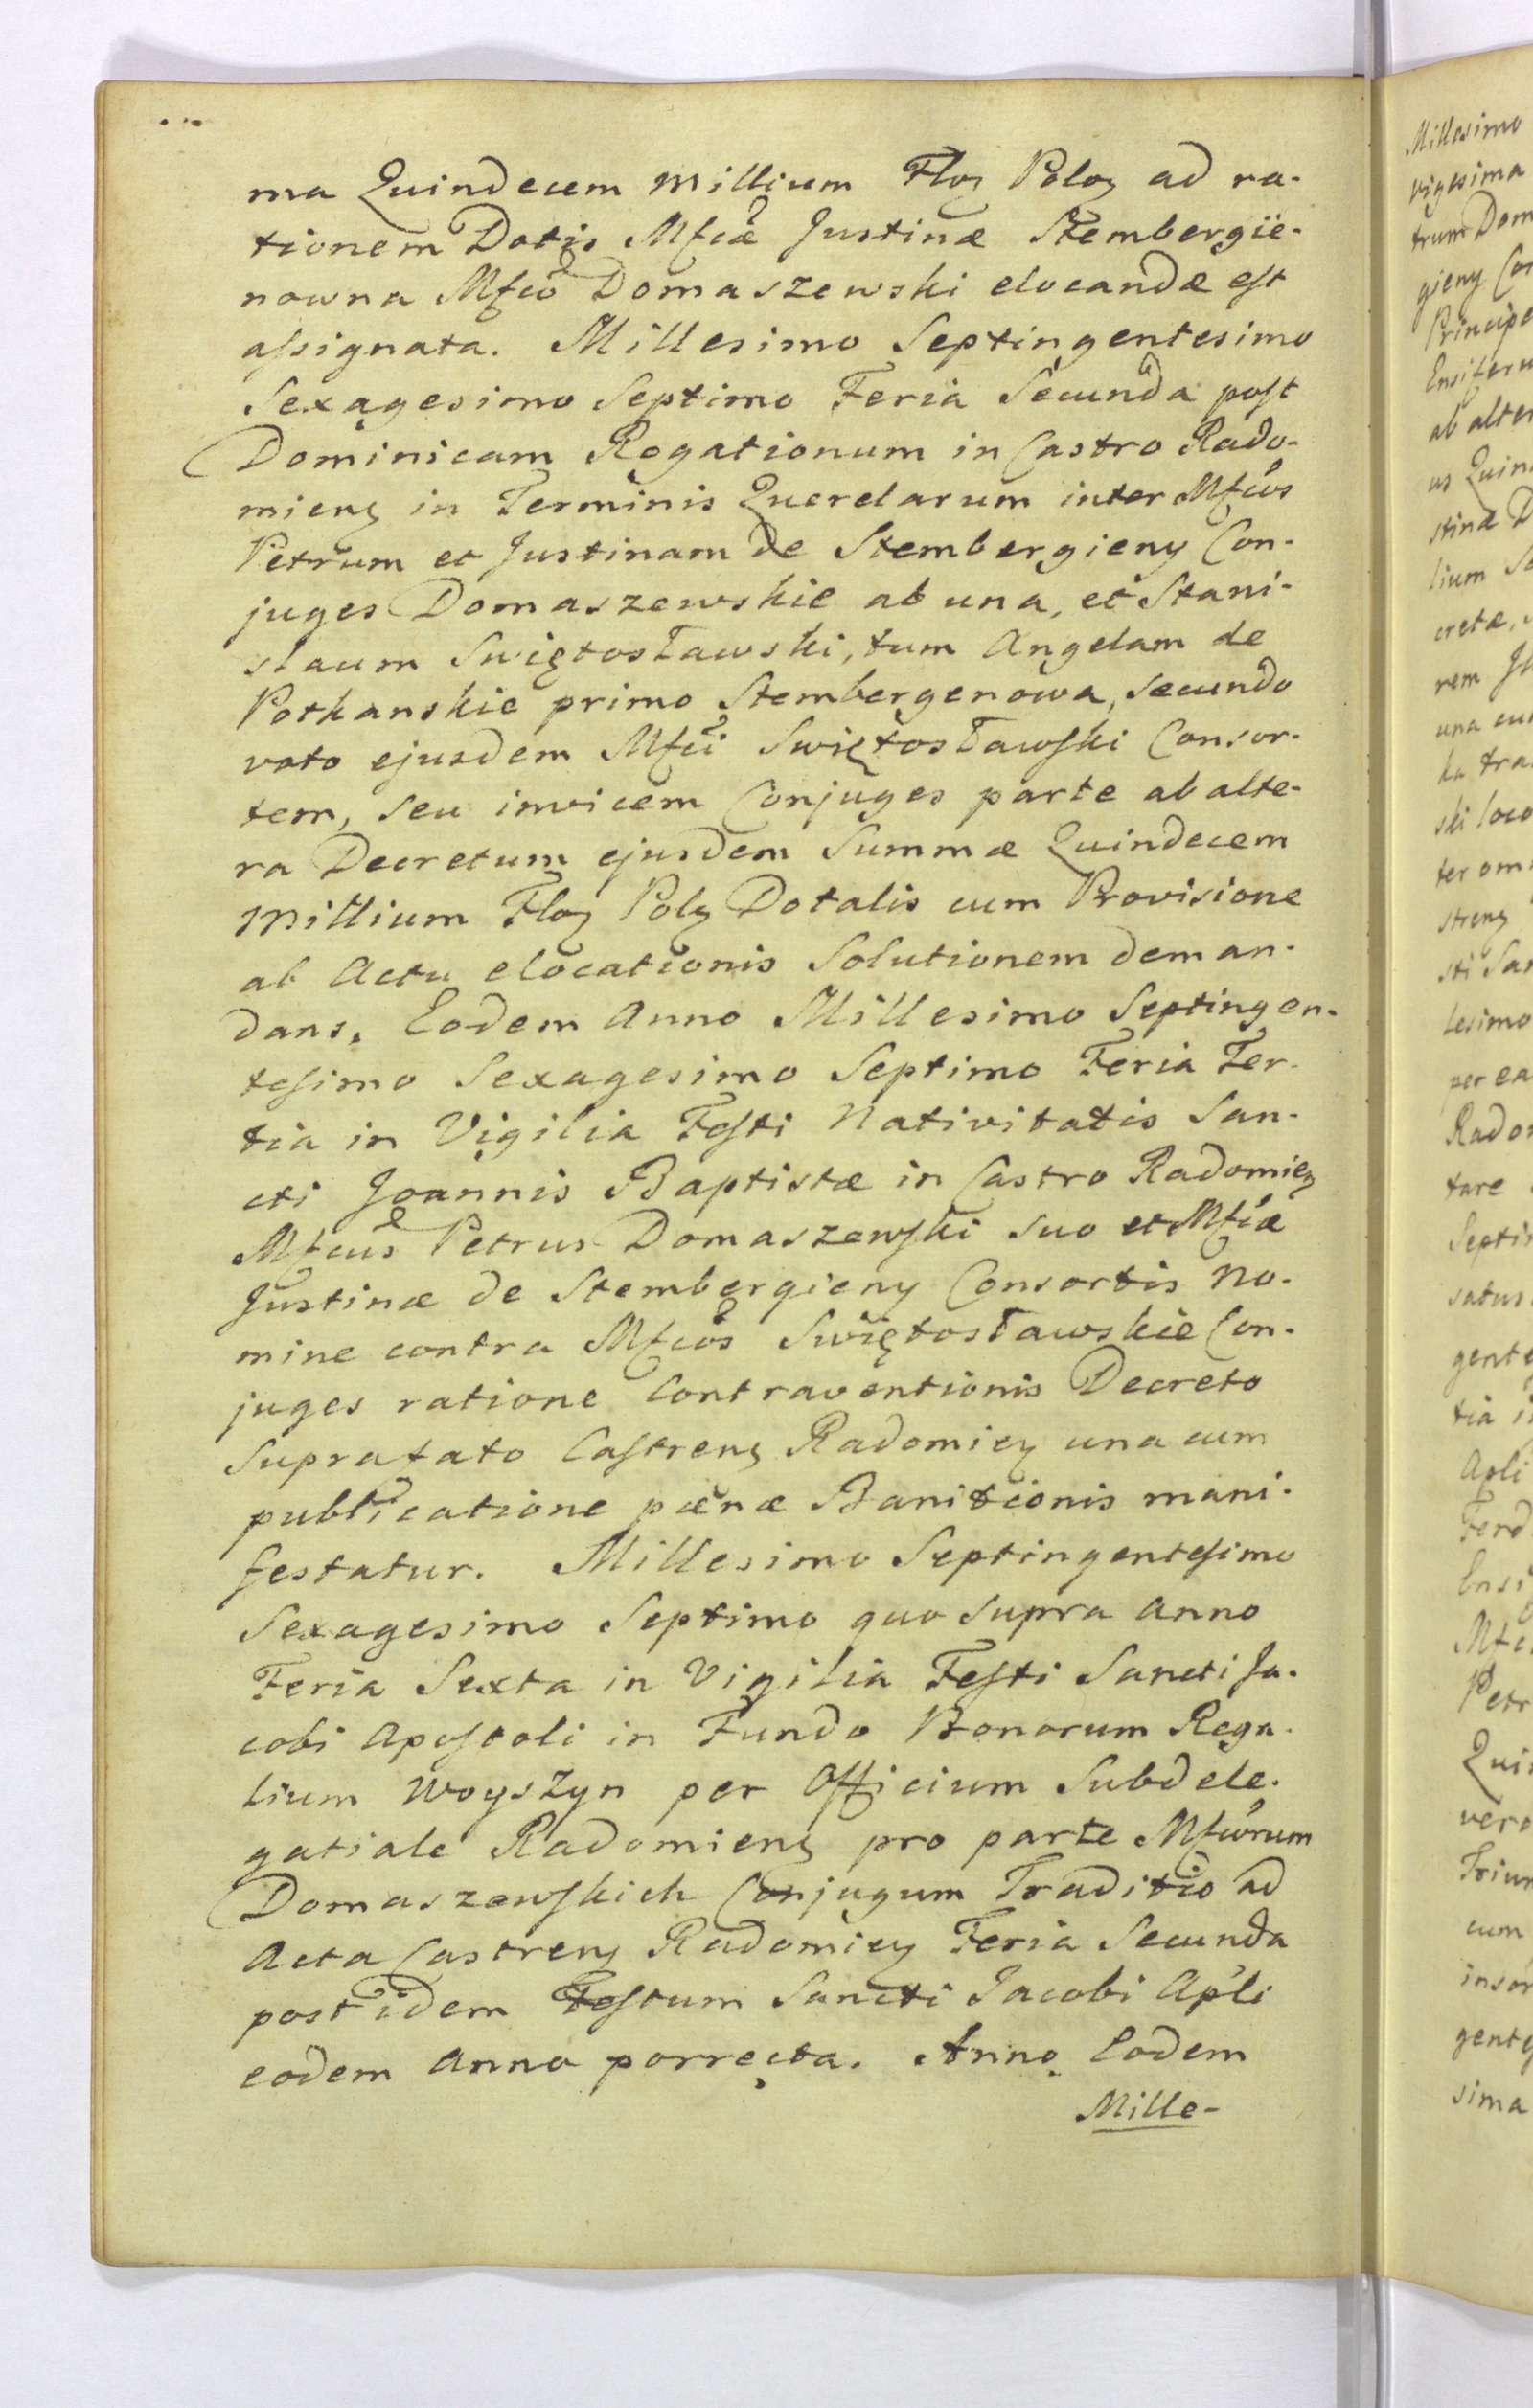 ma Quindecem Millium Floꝫ Poloꝫ ad ra-
tionem Dotis Mfcæ Justinæ Stembergie-
nowna Mfco Domaszewski elocandæ eſt
aſsignata. Millesimo Septingentesimo
Sexagesimo Septimo Feria Secunda poſt
Dominicam Rogationum in Castro Rado-
mienꝫ in Terminis Querelarum inter Mfcos
Petrum et Justinam de Stembergieny Con-
juges Domaszewskie ab una, et Stani-
slaum Swiętosławski, tum Angelam de
Potkanskie primo Stembergenowa, secundo
voto ejusdem Mfci Swiętosławſki Consor-
tem, seu invicem Conjuges parte ab alte-
ra Decretum ejusdem Summæ Quindecem
Millium Floꝫ Polꝫ Dotalis cum Provisione
ab Actu elocationis Solutionem deman-
dans. Eodem Anno Millesimo Septingen-
teſimo Sexagesimo Septimo Feria Ter-
tia in Vigilia Feſti Nativitatis San-
cti Joannis Baptistæ in Castro Radomieꝫ
Mfcus Petrus Domaszewſki suo et Mfcæ
Justinæ de Stembergieny Consortis No-
mine contra Mfcos Swiętosławskie Con-
juges ratione Contraventionis Decreto
Suprafato Caſtrenꝫ Radomieꝫ una cum
publicatione pœnæ Banitionis mani-
festatur. Millesimo Septingenteſimo
Sexagesimo Septimo quo supra Anno
Feria Sexta in Vigilia Feſti Sancti Ja-
cobi Apoſtoli in Fundo Bonorum Rega-
lium Woyszyn per Officium Subdele-
gatiale Radomienꝫ pro parte Mfcorum
Domaszewſkich Conjugum Traditio ad
Acta Castrenꝫ Radomieꝫ Feria Secunda
post idem Feſtum Sancti Jacobi Apli
eodem Anno porrecta. Anno Eodem
Mille-
Millesimo
vigesima
trum Dom
gieny Con
Principe
Ensiferu
ab alter
us Quin
stinæ D
lium
cretæ,
rem
una cu
ka tra
ski loco
ter om
strenꝫ
sti San
lesimo
per ea
Rado
tare
Septi
satus
gente
tia i
Apli
Ferd
Ensi
Mfc
Petr
Qui
vero
Trium
cum
insor
gente
sima